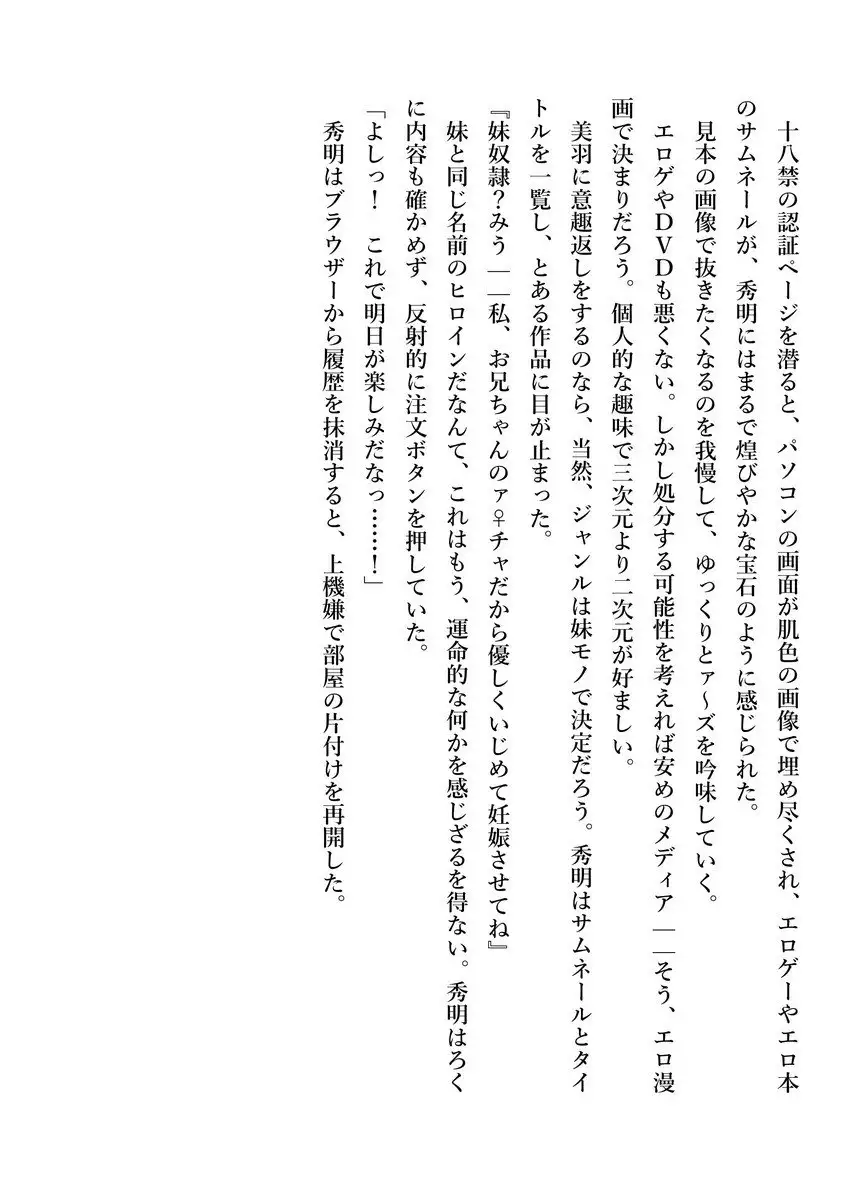 十八禁の認証ページを潜ると、パソコンの画面が肌色の画像で埋め尽くされ、エロゲーやエロ本
のサムネールが、秀明にはまるで煌びやかな宝石のように感じられた。
見本の画像で抜きたくなるのを我慢して、ゆっくりとァ〜ズを吟味していく。
エロゲやＤＶＤも悪くない。しかし処分する可能性を考えれば安めのメディア――そう、エロ漫
画で決まりだろう。個人的な趣味で三次元より二次元が好ましい。
美羽に意趣返しをするのなら、当然、ジャンルは妹モノで決定だろう。秀明はサムネールとタイ
トルを一覧し、とある作品に目が止まった。
『妹奴隷？みう――私、お兄ちゃんのァ♀チャだから優しくいじめて妊娠させてね』
妹と同じ名前のヒロインだなんて、これはもう、運命的な何かを感じざるを得ない。秀明はろく
に内容も確かめず、反射的に注文ボタンを押していた。
「よしっ！　これで明日が楽しみだなっ……！」
秀明はブラウザーから履歴を抹消すると、上機嫌で部屋の片付けを再開した。